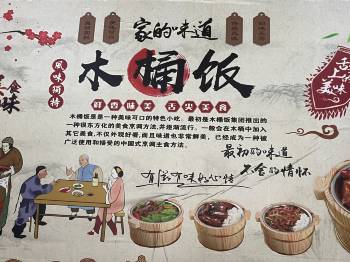 家的味道
风味独特
木桶饭
舌尖上的美味
美食
鲜香味美 舌尖美食
木桶饭是是一种美味可口的特色小吃。最初是木桶饭集团推出的
一种很东方化的美食烹调方法,并逐渐流行。一般会在木桶中加入
其它美食,不仅外观好看,而且味道也非常鲜美,已经成为一种被
广泛使用和接受的中国式烹调主食方法。
最初的味道
不舍的情怀
有滋有味的心情